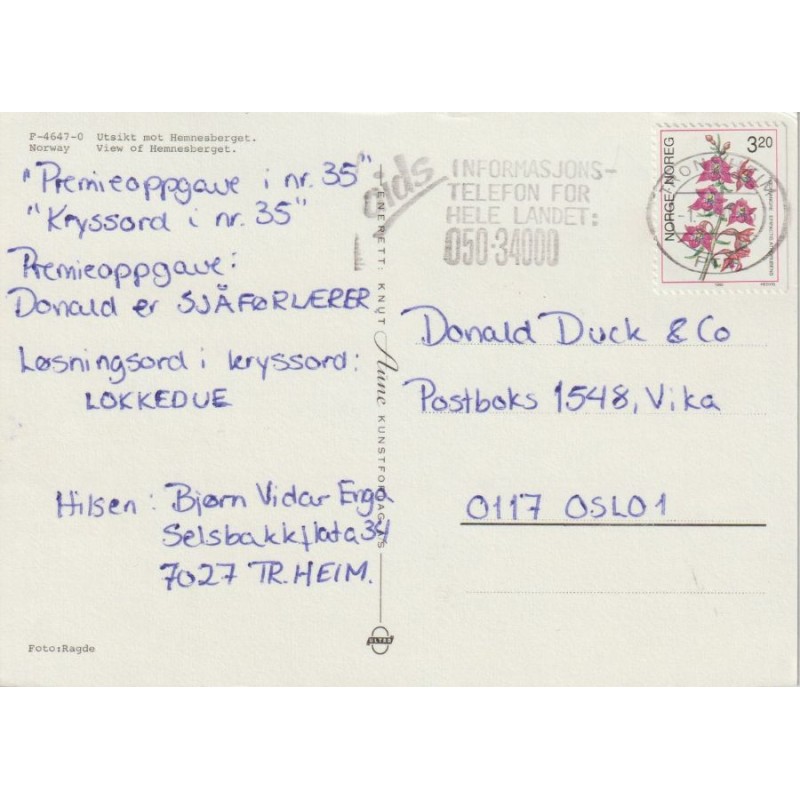 P-4647-0 Utsikt mot Hemnesberget.
Norway View of Hemnesberget.
"Premieoppgave i nr. 35"
"Kryssord i nr. 35"
Premieoppgave:
Donald er SJÅFØRLÆRER
Løsningsord i kryssord:
LOKKEDUE
Hilsen: Bjørn Vidar Enga
Selsbakkflata 34
7027 TR.HEIM.
Foto:Ragde
ENERETT: KNUT Aune KUNSTFORLAG A/S
ULTRA
aids
INFORMASJONS-
TELEFON FOR
HELE LANDET:
050-34000
NORGE·NOREG
3.20
TRONDHEIM
Donald Duck & Co
Postboks 1548, Vika
0117 OSLO 1